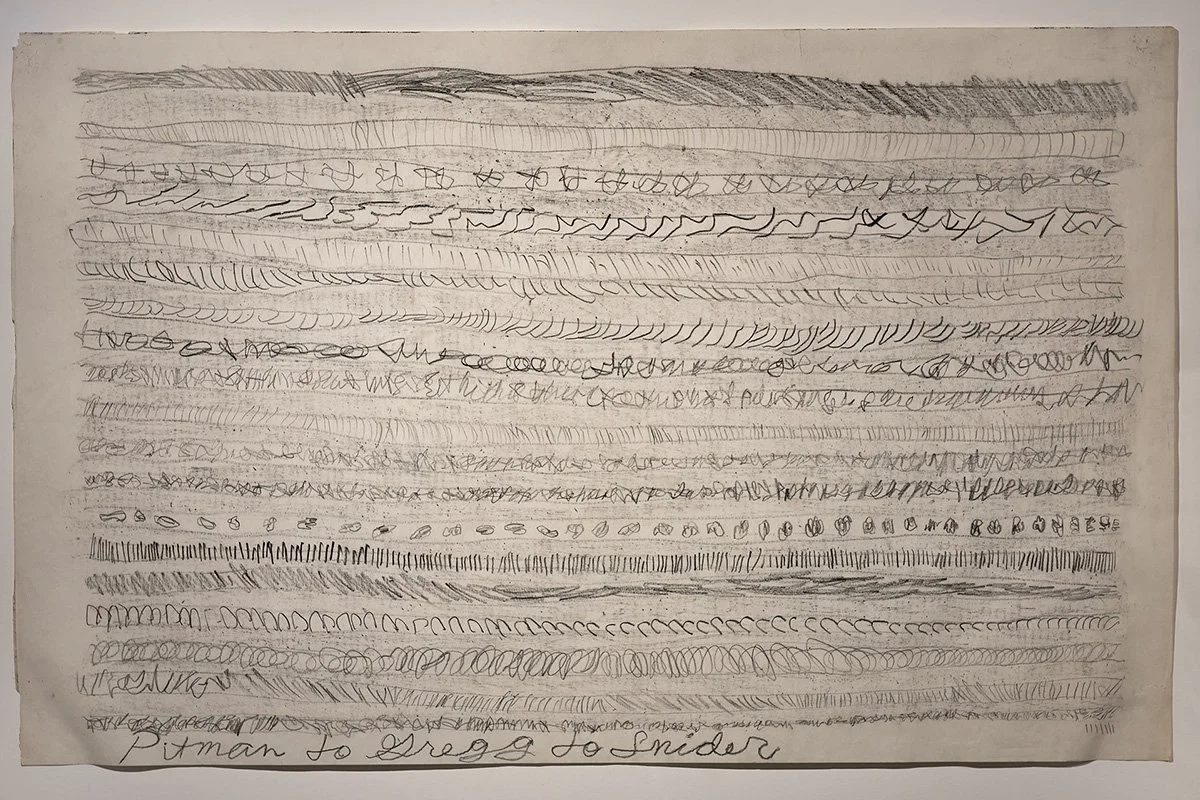 Pitman to Gregg to Snider